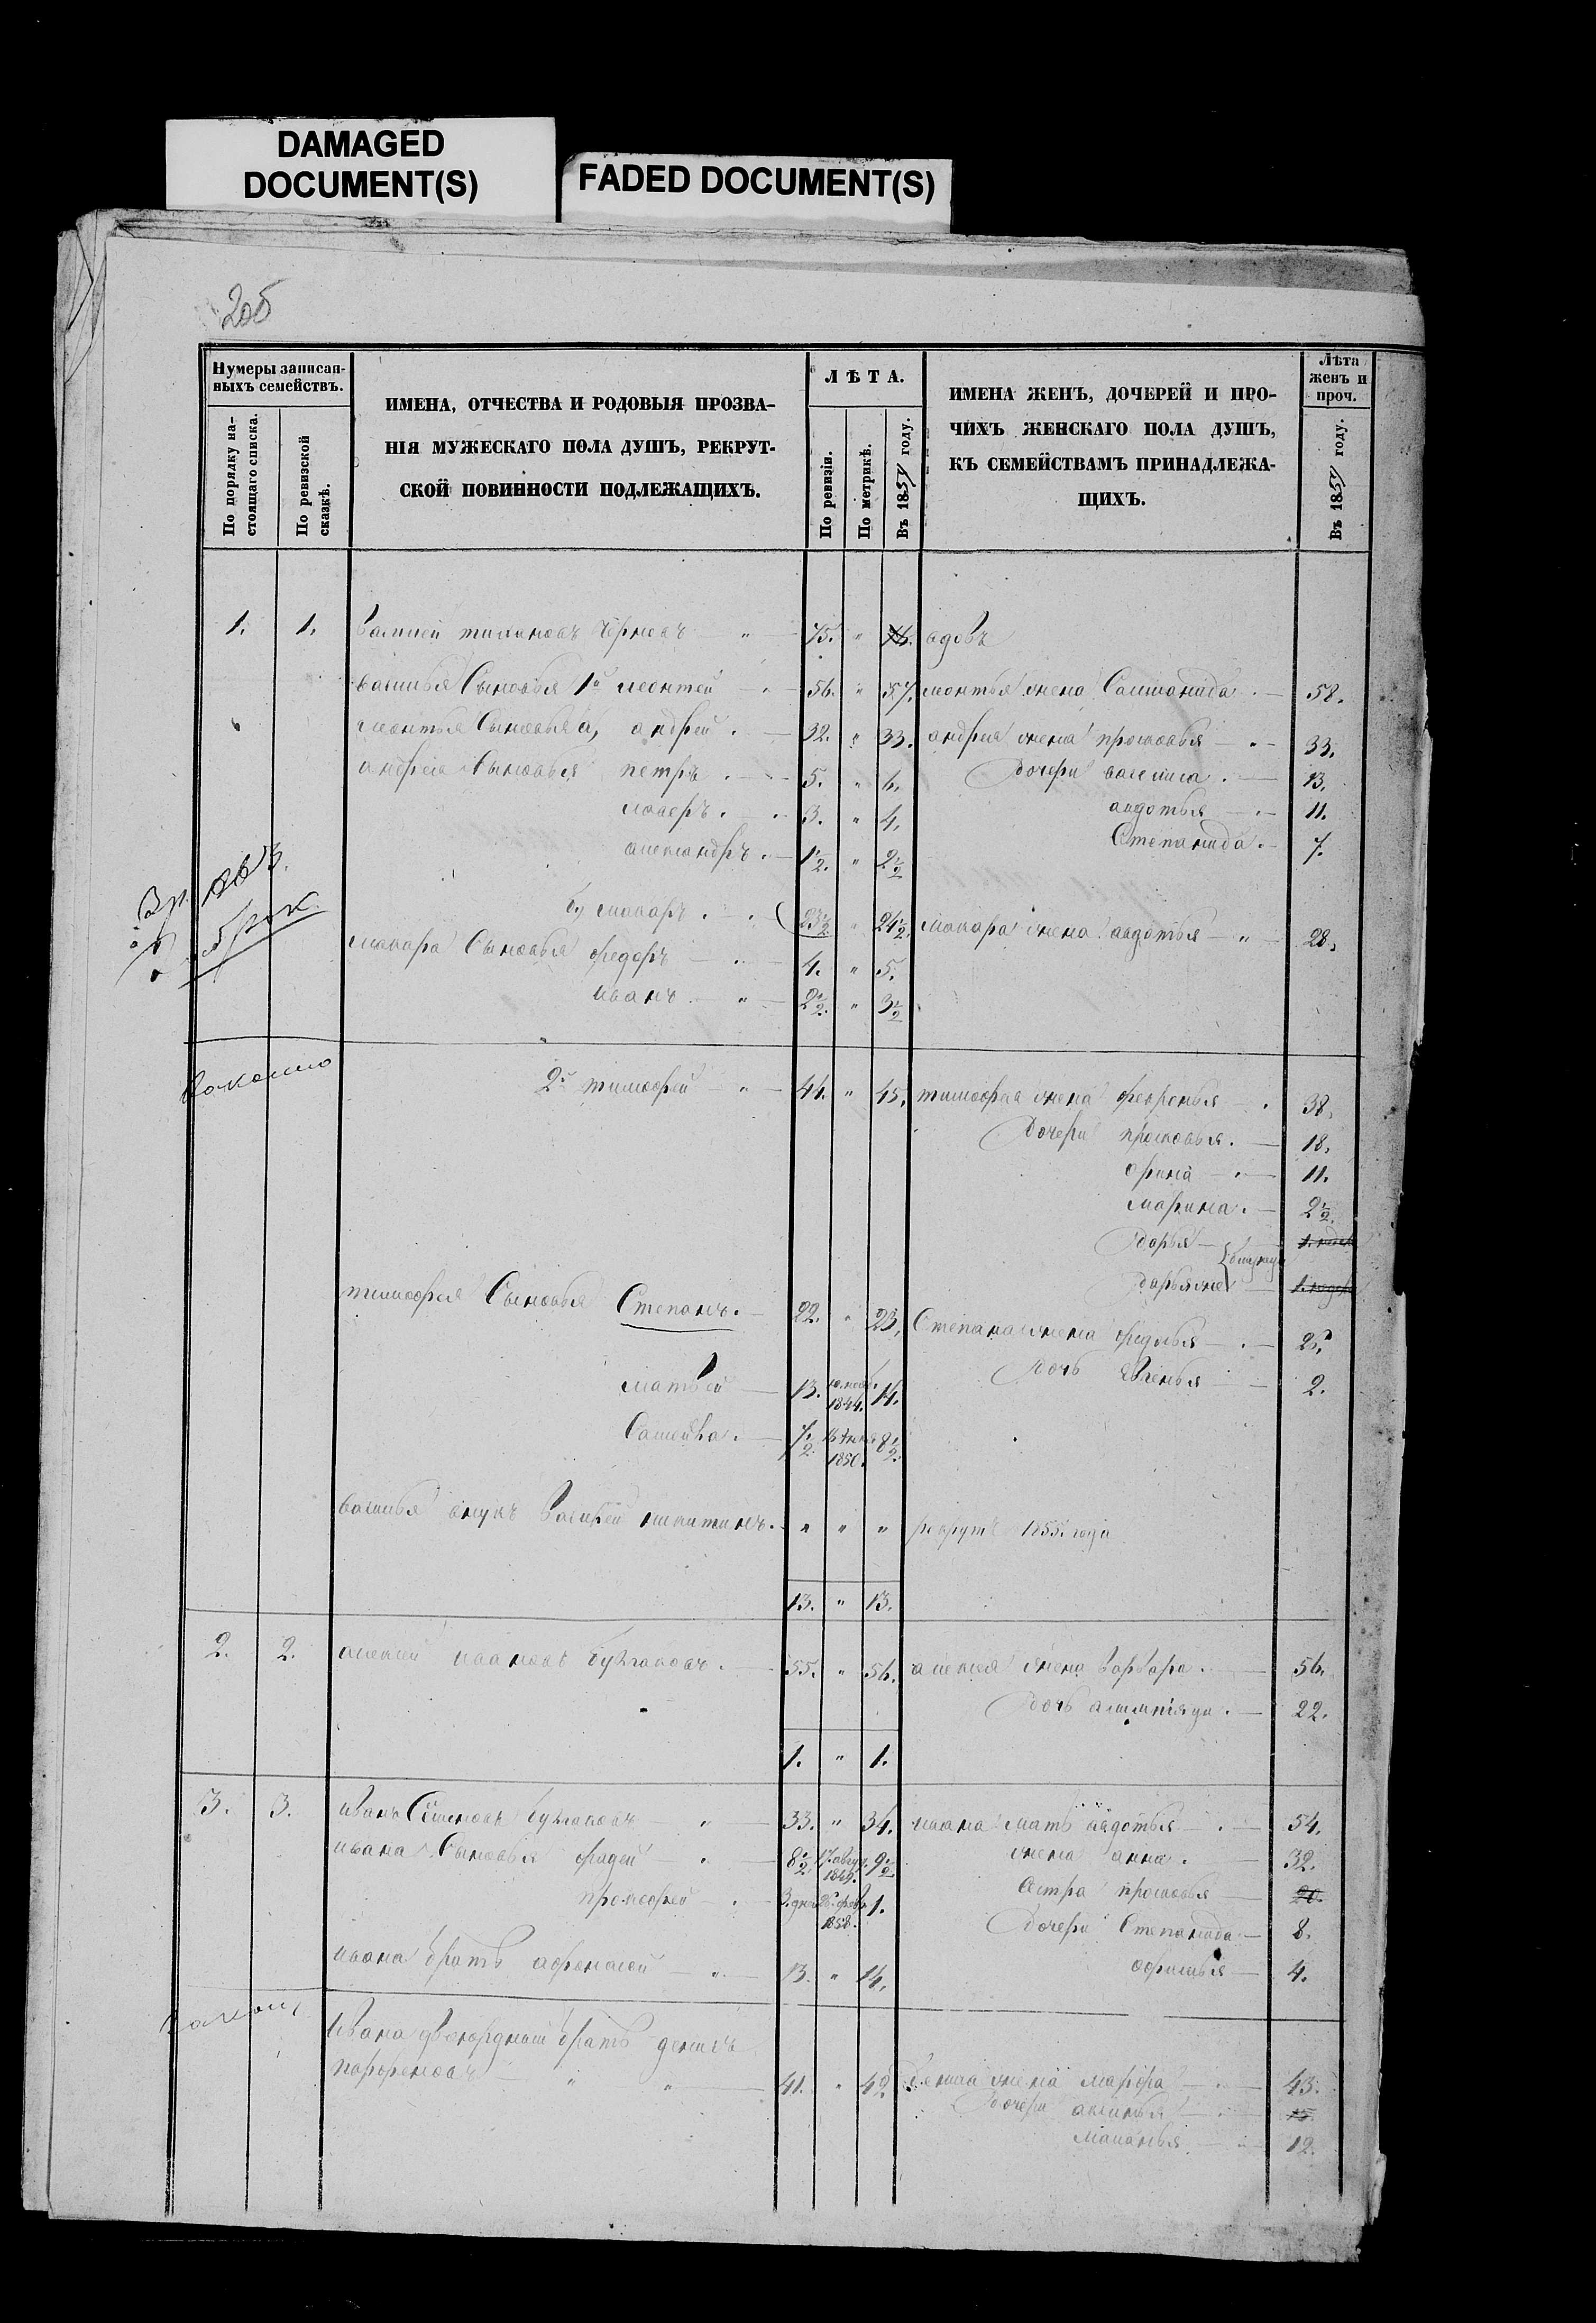 DAMAGED
DOCUMENT(S)
FADED DOCUMENT(S)
205
Нумеры записан-
ныхъ семействъ.
По порядку на-
стоящаго списка.
По ревизской
сказкѣ.
ИМЕНА, ОТЧЕСТВА И РОДОВЫЯ ПРОЗВА-
НІЯ МУЖЕСКАГО ПОЛА ДУШЪ, РЕКРУТ-
СКОЙ ПОВИННОСТИ ПОДЛЕЖАЩИХЪ.
ЛѢТА.
По ревизіи.
По метрикѣ.
Въ 185 году.
ИМЕНА ЖЕНЪ, ДОЧЕРЕЙ И ПРО-
ЧИХЪ ЖЕНСКАГО ПОЛА ДУШЪ,
КЪ СЕМЕЙСТВАМЪ ПРИНАДЛЕЖА-
ЩИХЪ.
Лѣта
женъ и
проч.
Въ 185 году.
1. 1. Чернов 75. " вдовъ
василья Сыновья 1й леонтей 56. " 57. леонтья жена 58.
леонтья Сыновья а, андрей 32. " 33. андрея жена прасковья 33.
андрея Сыновья петръ 5. " 6. Дочери 13.
лаверъ 3. " 4. авдотья 11.
александръ 1½. " 2½ Степанида 7.
б, макаръ 23½ " 24½. макара жена авдотья 28.
макара Сыновья федоръ 4. " 5.
иванъ 2½. " 3½
2й тимофей 44. " 45. тимофея жена февронья 38.
Дочери прасковья 18.
орина 11.
марина 2½.
дарья
тимофея Сыновья Степанъ 22. " 23. Степана жена 25.
Дочь 2.
матвей 13. 1844. 14.
7½ 1850. 8½.
василья внукъ Василей никитинъ " " " рекрутъ 1855 года
13. " 13.
2. 2. алексей ивановъ Булгаковъ 55. " 56. алексея жена варвара 56.
Дочь 22.
1. " 1.
3. 3. иванъ Семеновъ Булгаковъ 33. " 34. ивана мать авдотья 54.
ивана Сыновья фадей 8½ 17. август. 1849. 9½ жена анна 32.
3. дней 1858. 1. Сестра прасковья 20.
Дочери Степанида 8.
ивана братъ афонасей 13. " 14. офимья 4.
Ивана двоюродный братъ денисъ
парфеновъ 41. " 42 Дениса жена марфа 43.
Дочери аксинья
маланья 12.